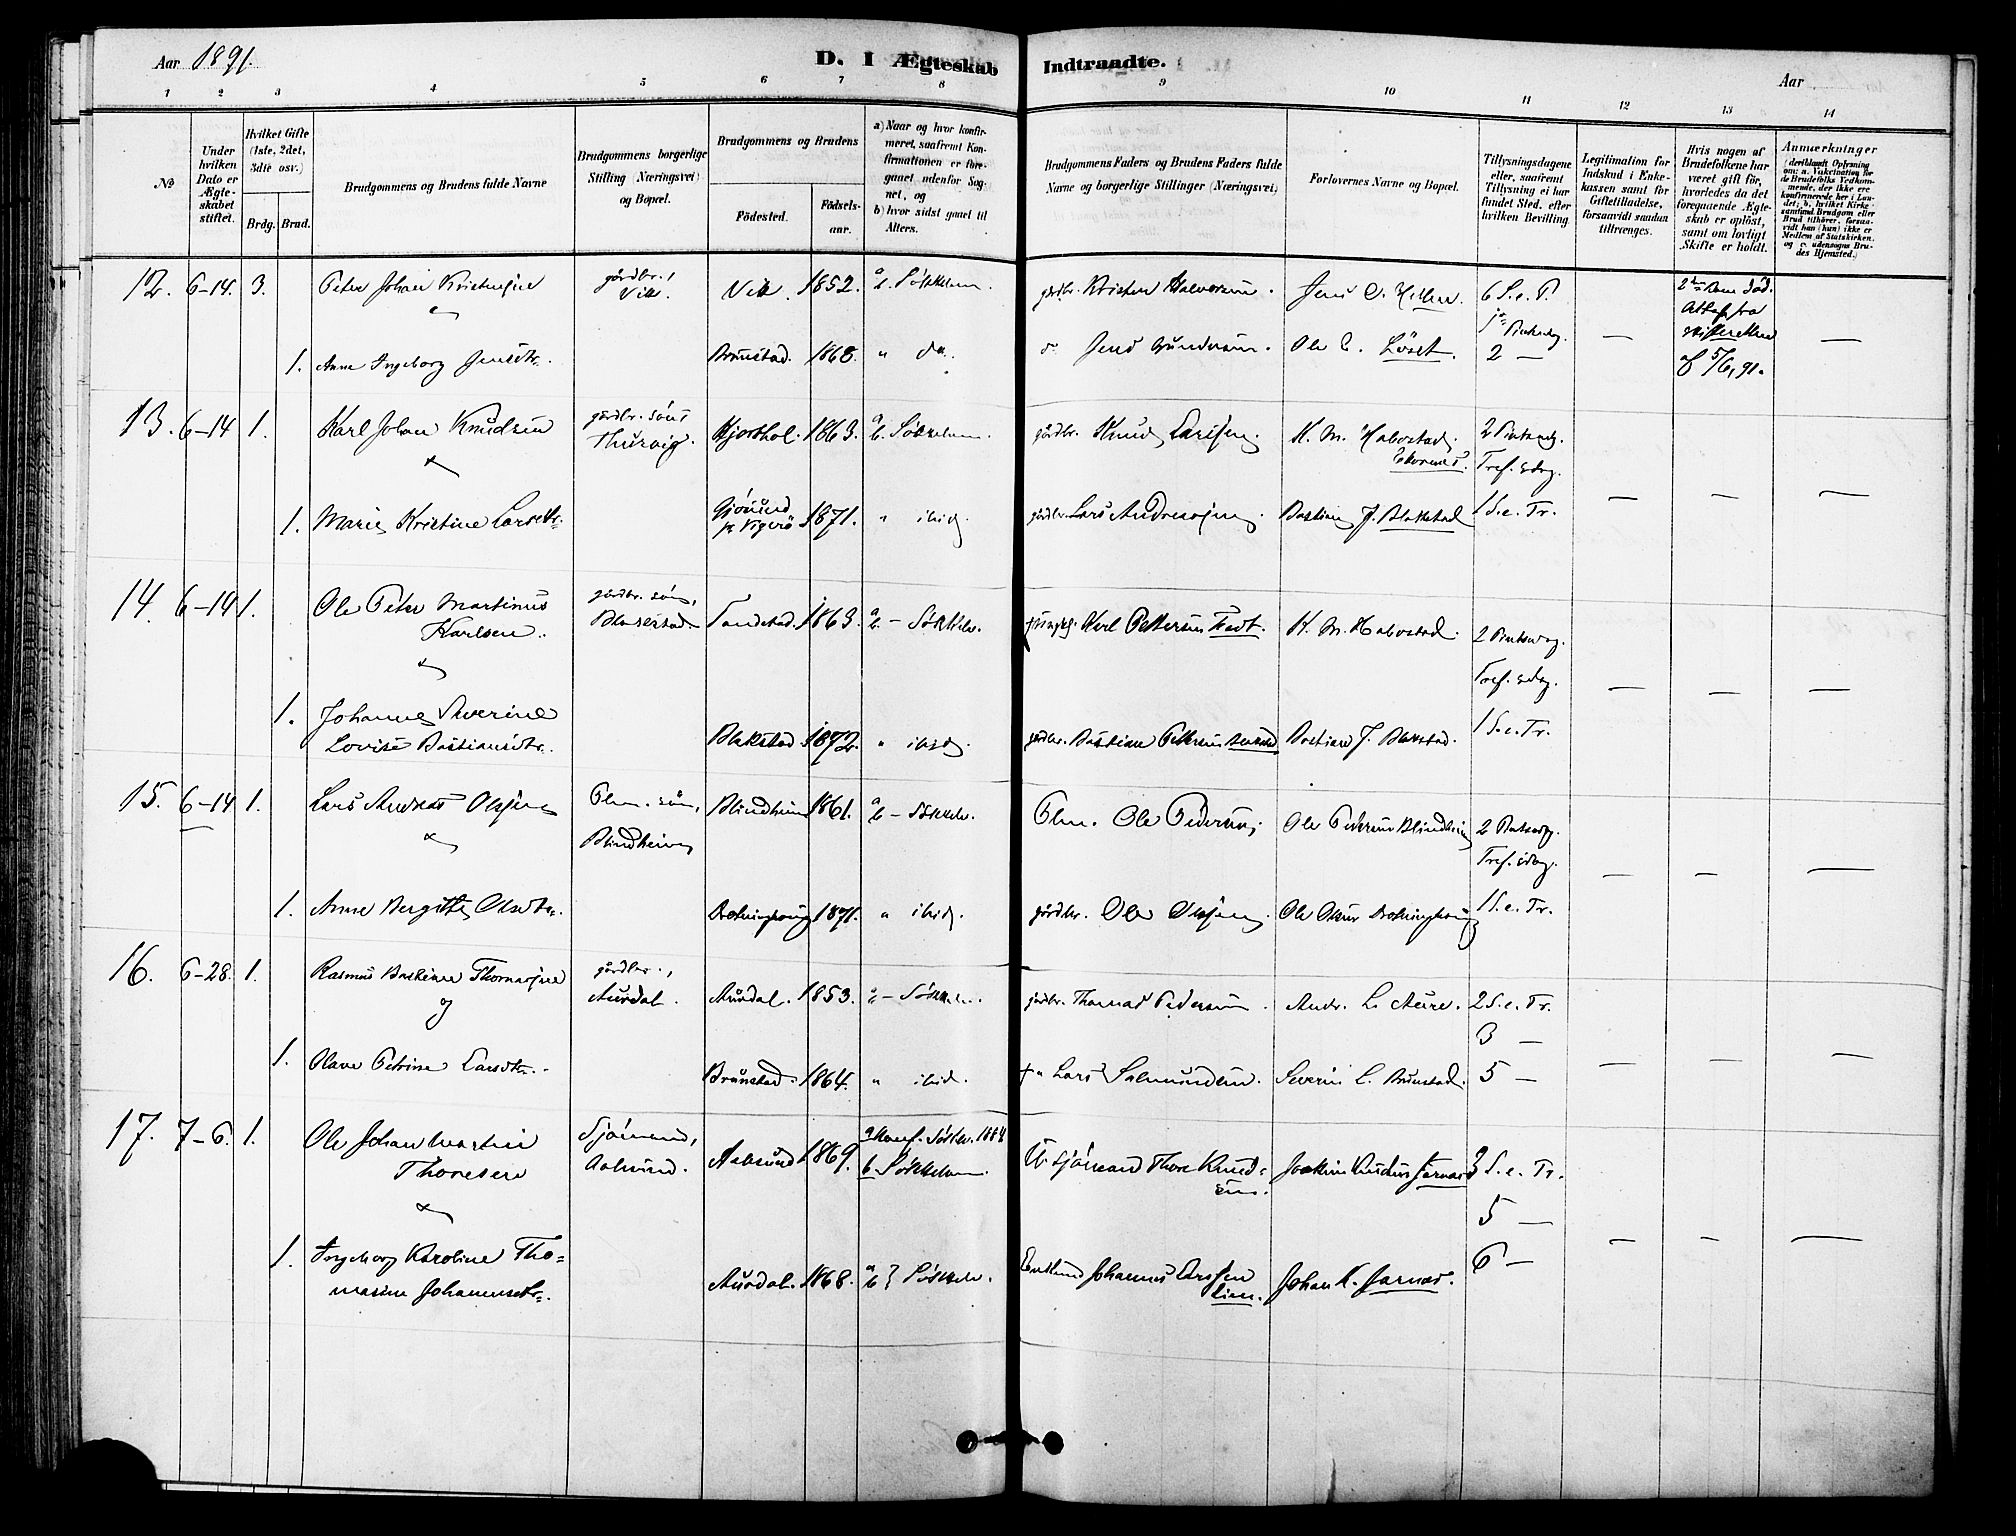 Aar 1891.
D. I Ægteskab Indtraadte.
Aar
1 2 3 4 5 6 7 8 9 10 11 12 13 14
No
Under hvilken Dato er Ægteskabet stiftet.
Hvilket Gifte (1ste, 2det, 3die osv.)
Brdg. Brud.
Brudgommens og Brudens fulde Navne
Brudgommens borgerlige Stilling (Næringsvei) og Bopæl.
Brudgommens og Brudens
Födested. Födselsaar.
a) Naar og hvor konfirmeret, saafremt Konfirmationen er foregaaet udenfor Sognet, og
b) hvor sidst gaaet til Alters.
Brudgommens Faders og Brudens Faders fulde Navne og borgerlige Stillinger (Næringsvei)
Forlovernes Navne og Bopæl.
Tillysningsdagene eller, saafremt Tillysning ei har fundet Sted, efter hvilken Bevilling
Legitimation for Indskud i Enkekassen samt for Giftetilladelse, forsaavidt saadan tiltrænges.
Hvis nogen af Brudefolkene har været gift för, hvorledes da det foregaaende Ægteskab er oplöst, samt om lovligt Skifte er holdt.
Anmærkninger (deriblandt Oplysning om: a. Vakcination for de Brudefolks Vedkommende, der ikke ere konfirmerede her i Landet; b. hvilket Kirkesamfund Brudgom eller Brud tilhörer, forsaavidt han (hun) ikke er Medlem af Statskirken, og c. udensogns Brudes Hjemsted.)
12. 6-14. 3. Peter Johan Kristensen gårdbr., Vik. Vik. 1852. gårdbr. Kristen Halvorsen. Jens O. Hellen. 6 S. e. P.
1. Anne Ingeborg Jensdtr. Brunstad. 1868. " do. Jens Gundersen. Ole E. Löset. 2 —
af 5/6, 91.
13. 6-14 1. Karl Johan Knudsen gårdbr. sön, Thusvig. Hjorthol. 1863. gårdbr. Knud Larsen. K. M. Habostad, 2 Pintsedg. Tref. sdag.
1. Marie Kristine Larsdtr. Gjösund på Vigerö 1871. " ibid. gårdbr. Lars Andreassen. Bastian J. Blakstad 1 S. e. Tr.
14. 6-14 1. Ole Peter Martinus Karlsen. gårdbr. sön, Blakstad. Tandstad. 1863. Karl Pettersen K. M. Habostad. 2 Pintsedag. Tref. sdag.
1. Johanne Severine Lovise Bastiansdtr. Blakstad. 1872. " ibid. gårdbr. Bastian Pettersen Bastian J. Blakstad. 1 S. e. Tr.
15. 6-14 1. Lars Andreas Olsen Plm. sön, Blindheim Blindheim 1861. Plm. Ole Pedersen, Ole Pedersen Blindheim 2 Pintsedg. Tref. sdag.
1. Anne Bergitte Olsdtr. Drotninghaug 1871. " ibid. gårdbr. Ole Olsen. Ole Olsen Drotninghaug 1 S. e. Tr.
16. 6-28. 1. Rasmus Bastian Thomassen og gårdbr., Aurdal. Aurdal. 1853. gårdbr. Thomas Pedersen. Andr. L. Aure. 2 S. e. Tr. 3 —
1. Olave Petrine Larsdtr. Brunstad. 1864. " ibid. † " Lars Salmundsen. Severin L. Brunstad. 5 —
17. 7-6. 1. Ole Johan Martin Thoresen Sjömand, Aalesund. Aalesund 1869. Sjömand Thore Knudsen. Joakim Knudsen Jarnæs 3 S. e. Tr. 5 —
1. Ingeborg Karoline Thomasine Johannesdtr. Aurdal. 1868. Johannes Larssen Lien. Johan K. Jarnæs. 6 —